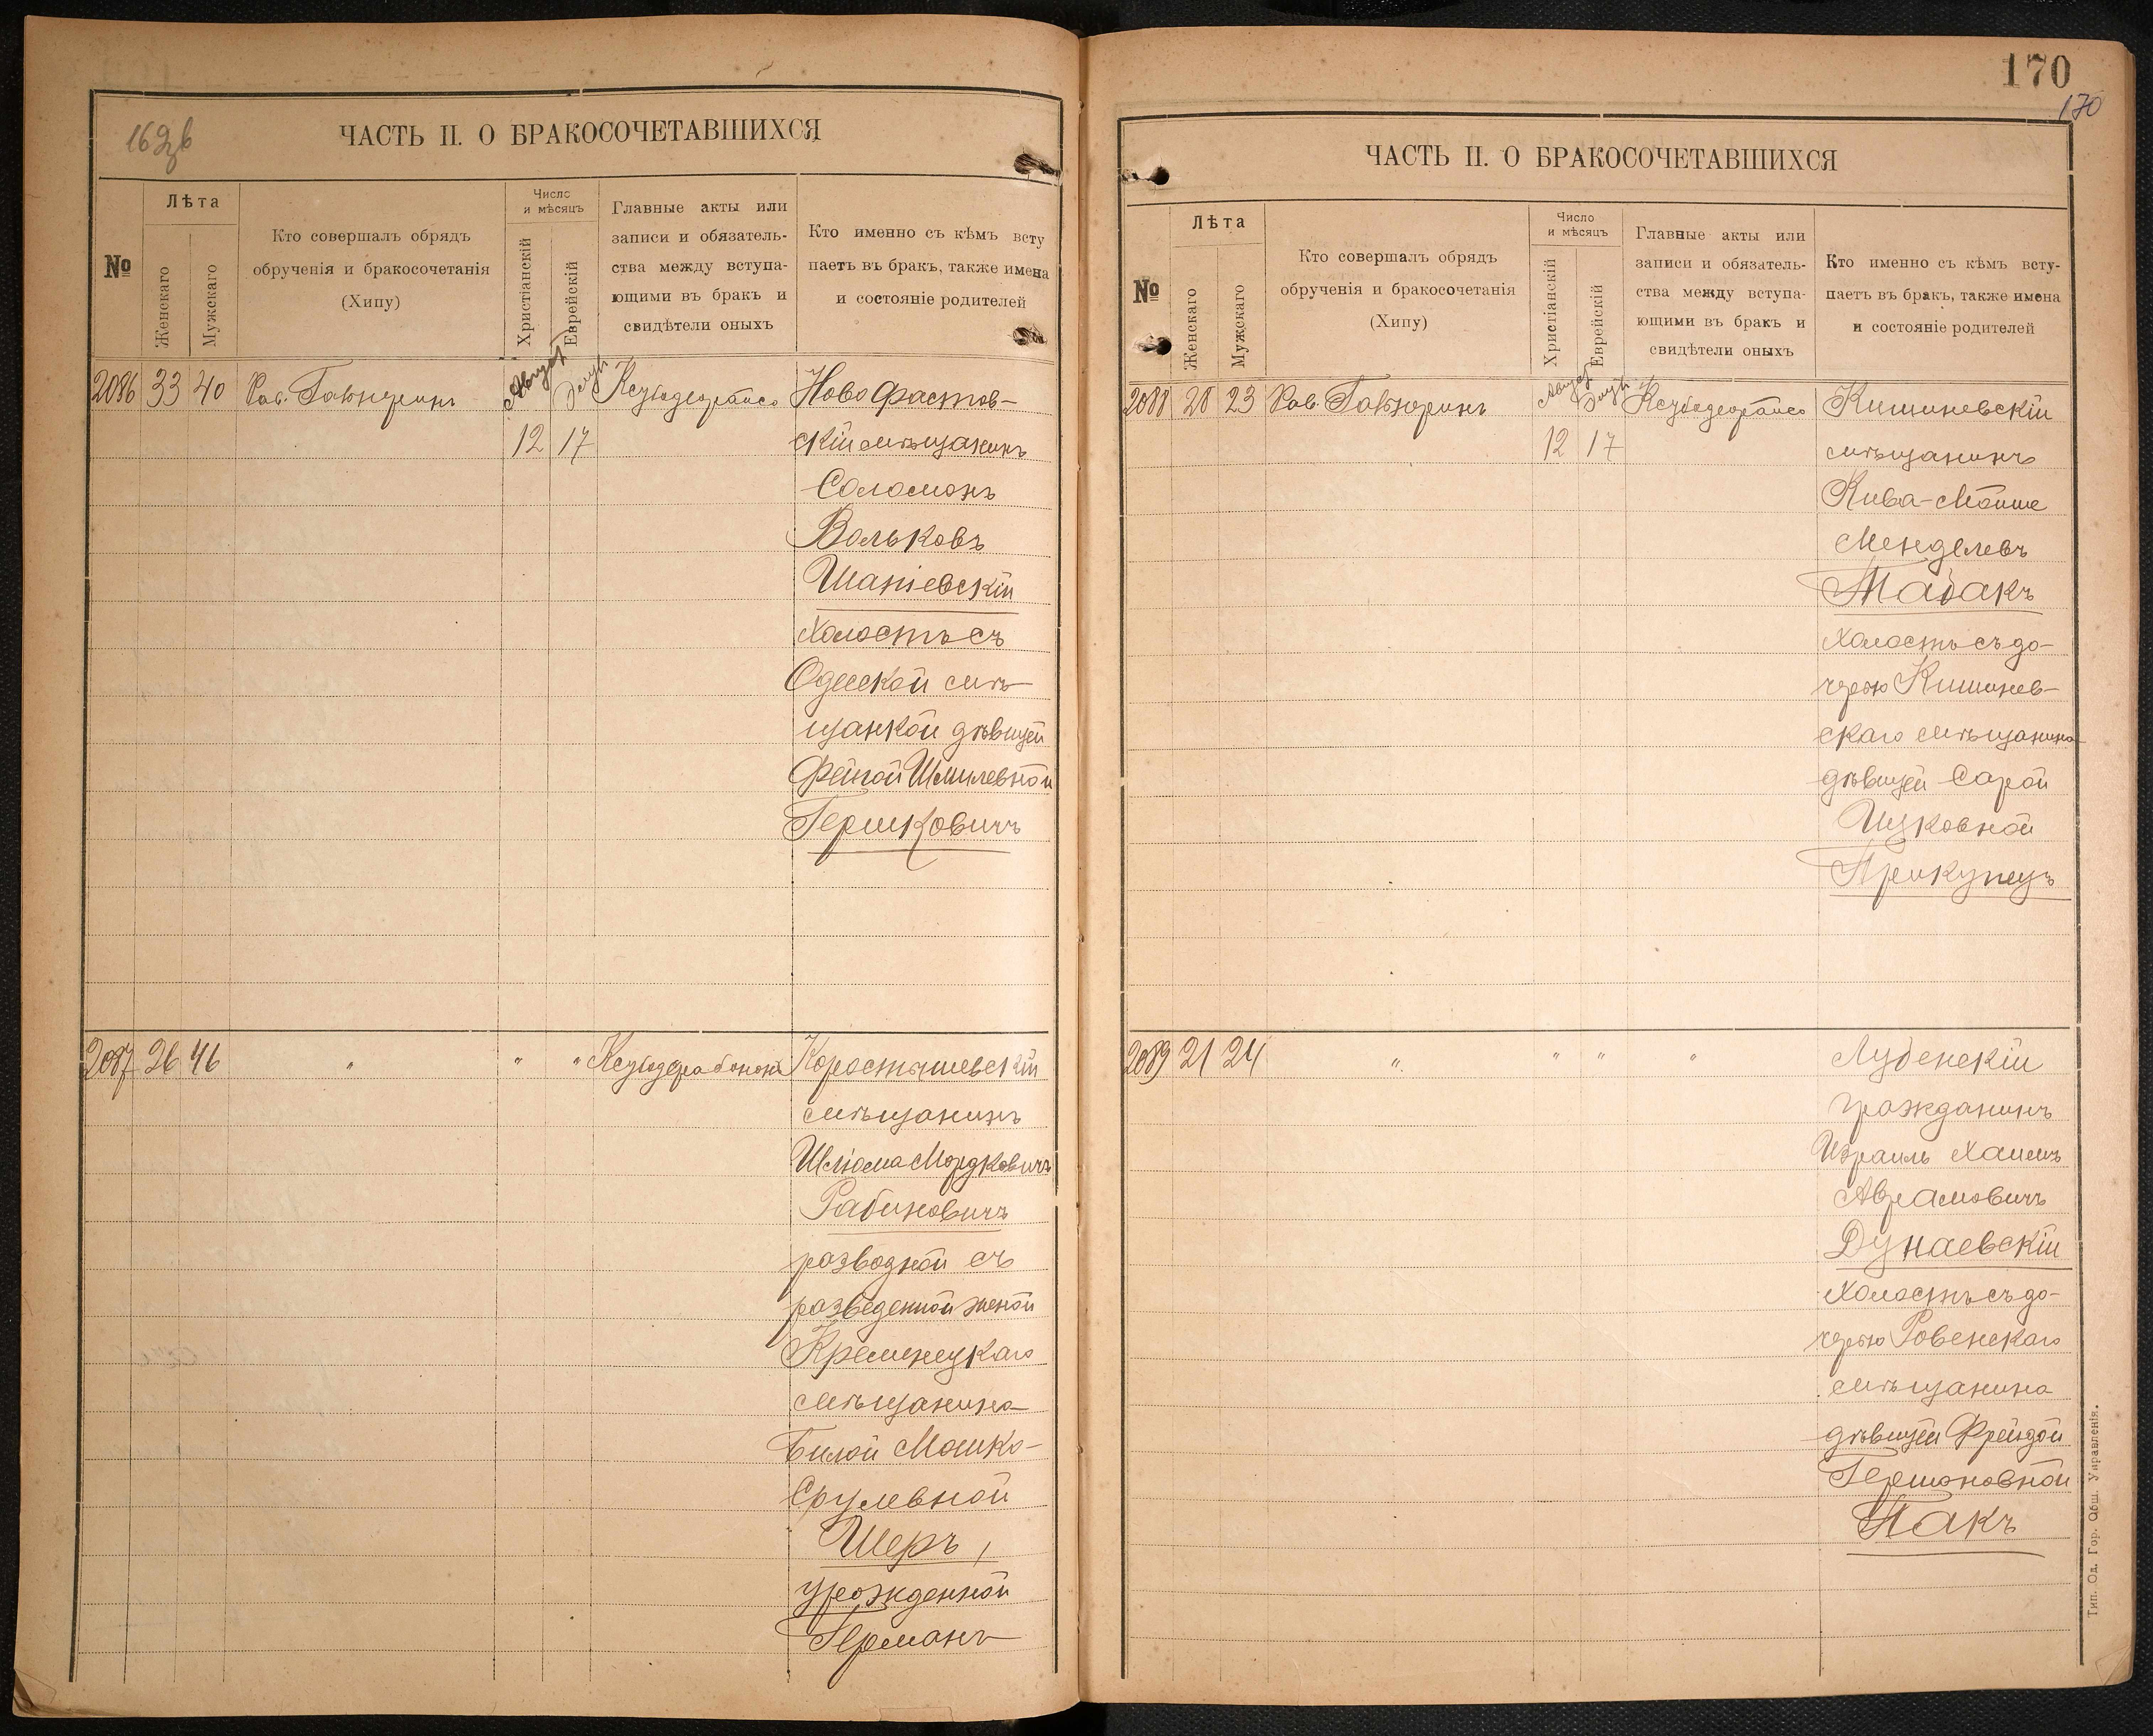 169об
ЧАСТЬ II. О БРАКОСОЧЕТАВШИХСЯ
№
Лѣта
Женскаго
Мужскаго
Кто совершалъ обрядъ
обрученія и бракосочетанія
(Хипу)
Число
и мѣсяцъ
Христіанскій
Еврейскій
Главные акты или
записи и обязатель-
ства между вступа-
ющими въ бракъ и
свидѣтели оныхъ
Кто именно съ кѣмъ всту
паетъ въ бракъ, также имена
и состояніе родителей
2086 33 40 Рав. Август Элул Ново Фастов-
12 17 скій мѣщанинъ
Соломонъ
Вольковъ
Шапіевскій
холостъ съ
Одесской мѣ-
щанкой дѣвицей
Фейгой Шмилевной
Гершковичъ
2087 26 46 " " " Коростышевскій
мѣщанинъ
Шлiома Мордковичъ
Рабиновичъ
разводной съ
разведенной женой
Кременецкаго
мѣщанина
Билой Мошко-
Срулевной
Шеръ,
урожденной
Германъ
170
170
ЧАСТЬ II. О БРАКОСОЧЕТАВШИХСЯ
№
Лѣта
Женскаго
Мужскаго
Кто совершалъ обрядъ
обрученія и бракосочетанія
(Хипу)
Число
и мѣсяцъ
Христіанскій
Еврейскій
Главные акты или
записи и обязатель-
ства между вступа-
ющими въ бракъ и
свидѣтели оныхъ
Кто именно съ кѣмъ всту-
паетъ въ бракъ, также имена
и состояніе родителей
2088 28 23 Рав. Август Элул Кишиневскій
12 17 мѣщанинъ
Кива-Мойше
Менделевъ
Табакъ
холостъ съ до-
черью Кишинев-
скаго мѣщанина
дѣвицей Сарой
Ицковной
Прикупецъ
2089 21 24 " " " " Лубенскій
гражданинъ
Израиль Хаимъ
Аврамовичъ
Дунаевскій
холостъ съ до-
черью Ровенскаго
мѣщанина
дѣвицей Фрейдой
Гершоновной
Пакъ
Тип. Од. Гор. Общ. Управленія.